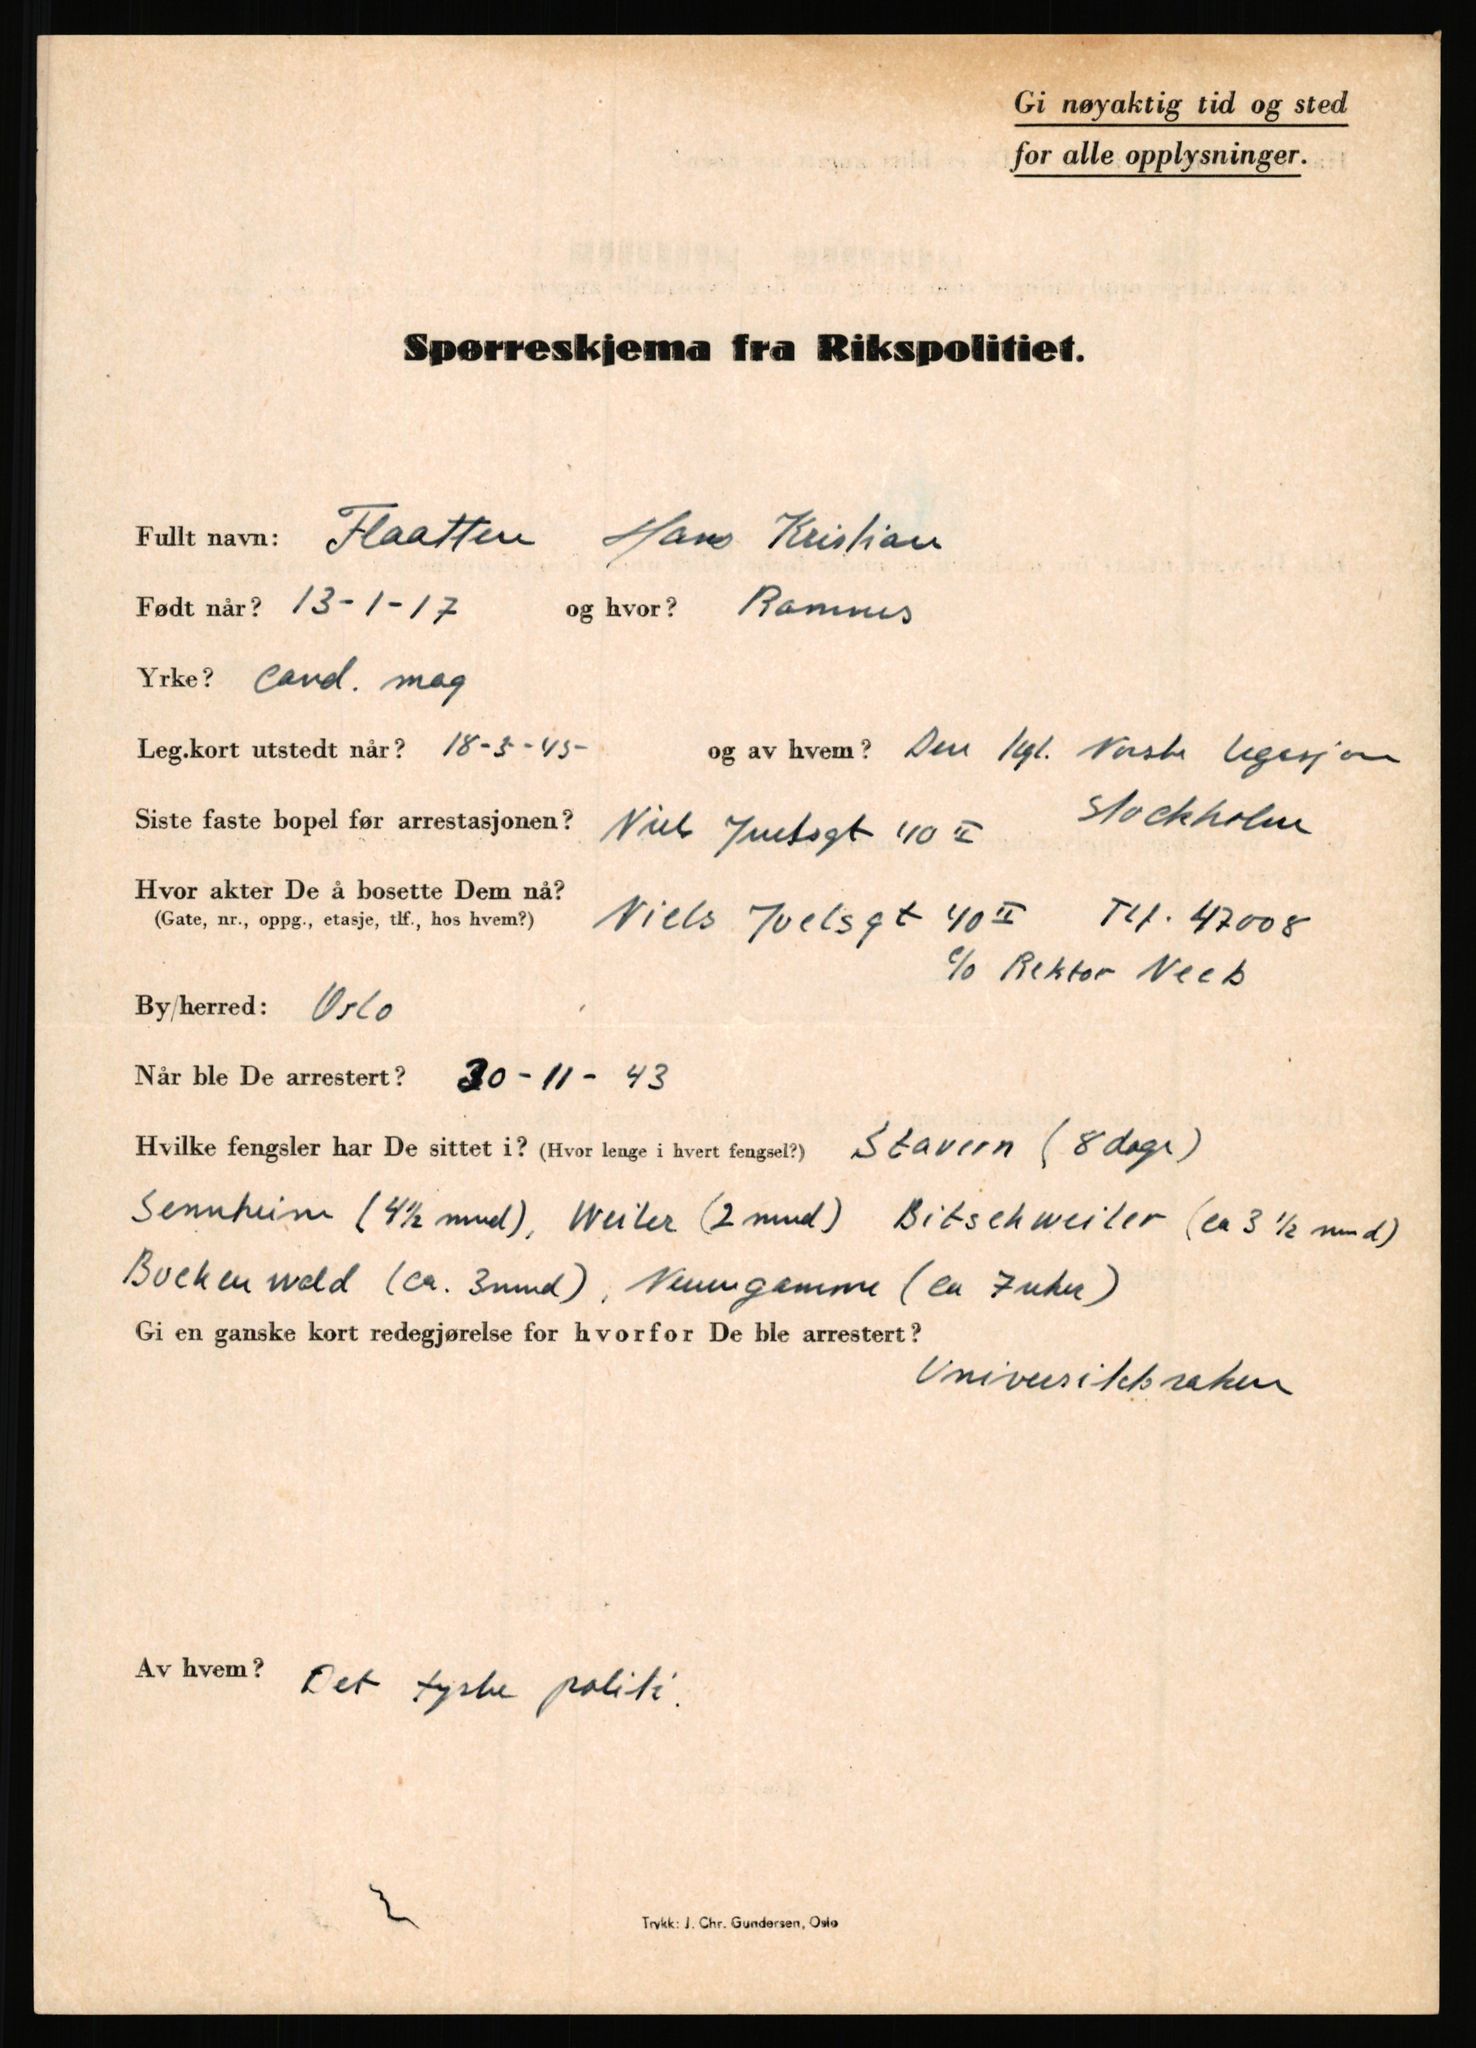 Gi nøyaktig tid og sted
for alle opplysninger.
Spørreskjema fra Rikspolitiet.
Fullt navn: Flaatten Hans Kristian
Født når? 13-1-17 og hvor? Ramnes
Yrke? Cand. mag
Leg.kort utstedt når? 18-5-45- og av hvem? Den kgl. Norske legasjon
Stockholm
Siste faste bopel før arrestasjonen? Niels Juelsgt 40 II
Hvor akter De å bosette Dem nå? Niels Juelsgt 40 II Tlf. 47008
(Gate, nr., oppg., etasje, tlf., hos hvem?)
c/o Rektor
By/herred: Oslo
Når ble De arrestert? 30-11-43
Hvilke fengsler har De sittet i? (Hvor lenge i hvert fengsel?) Stavern (8 dage)
Sennheim (4½ mnd), Weiler (2 mnd) Bitschweiler (ca 3 ½ mnd)
Buchenwald (ca. 3 mnd), Neuengamme (ca 7 uker)
Gi en ganske kort redegjørelse for hvorfor De ble arrestert?
Universitetssaken
Av hvem? Det tyske politi.
Trykk: J. Chr. Gundersen, Oslo